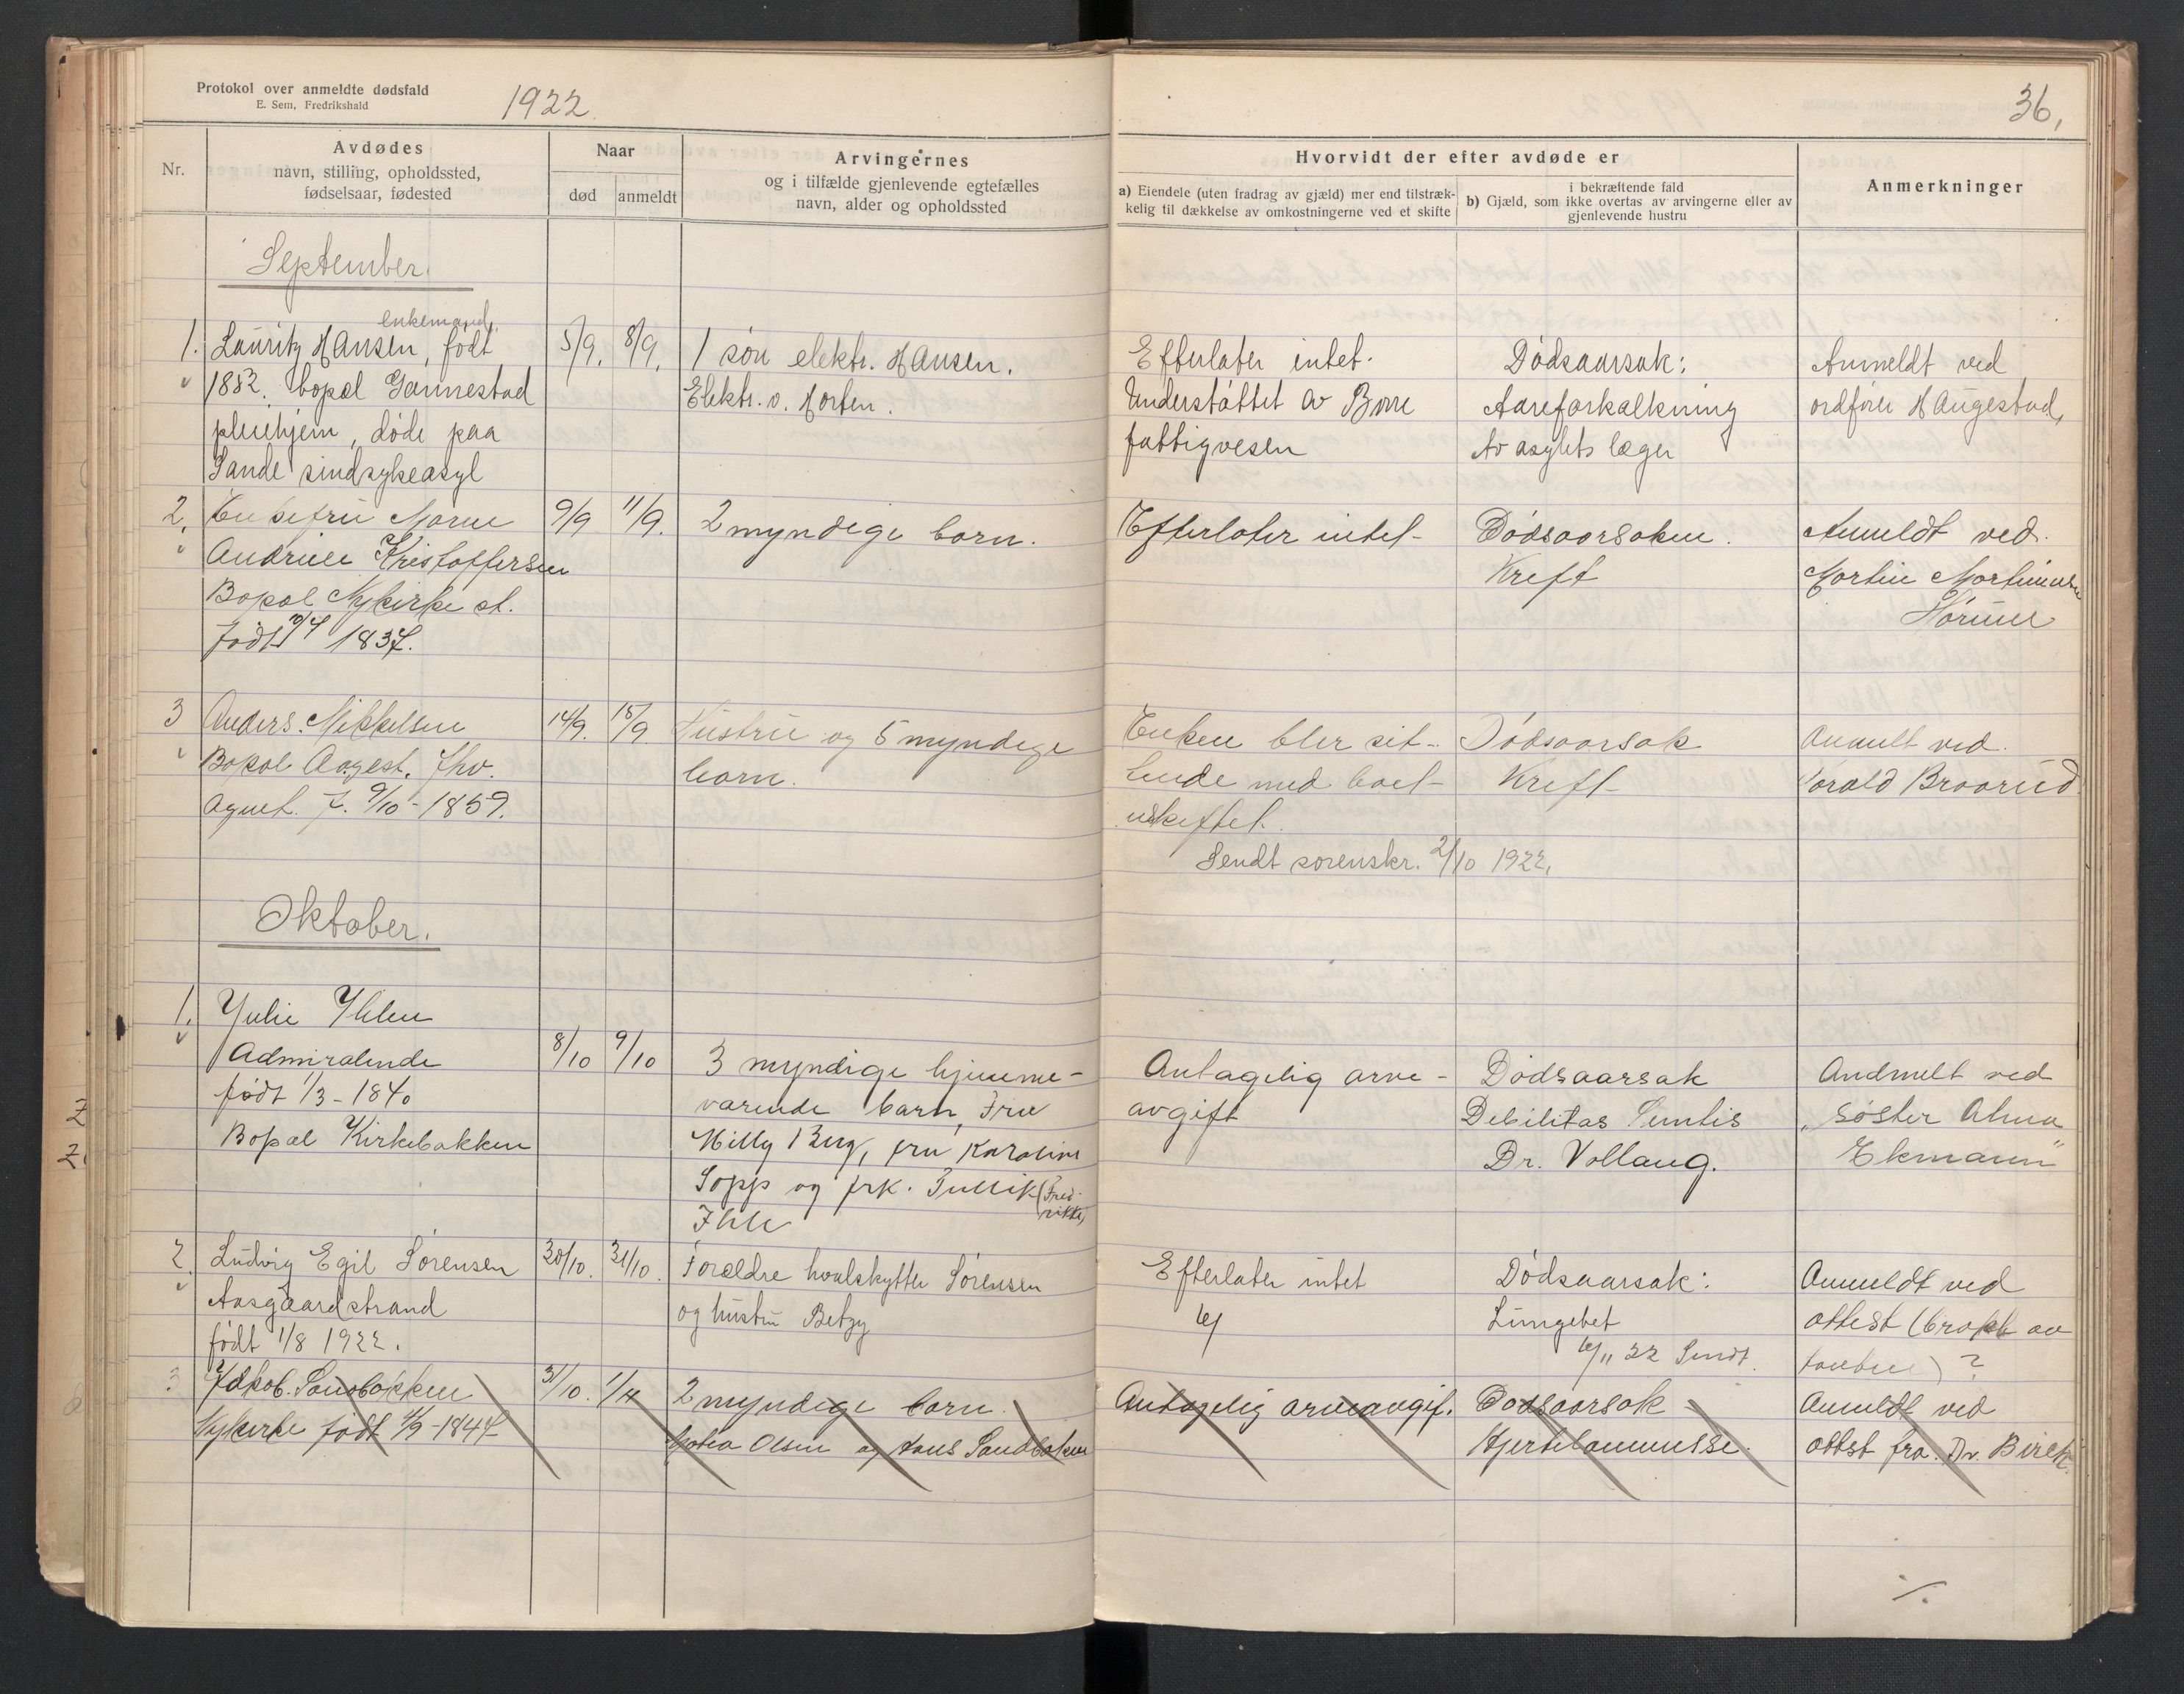 Protokol over anmeldte dødsfald
E. Sem, Fredrikshald
1922.
36,
Nr.
Avdødes
navn, stilling, opholdssted,
fødselsaar, fødested
Naar
død
anmeldt
Arvingernes
og i tilfælde gjenlevende egtefælles
navn, alder og opholdssted
Hvorvidt der efter avdøde er
a) Eiendele (uten fradrag av gjæld) mer end tilstræk-
kelig til dækkelse av omkostningerne ved et skifte
i bekræftende fald
b) Gjæld, som ikke overtas av arvingerne eller av
gjenlevende hustru
Anmerkninger
September.
1.
enkemand,
Lauritz Hansen, født
1852. bopæl Gannestad
pleiehjem, døde paa
Sande sindsykeasyl
5/9.
8/9.
1 søn elektr. Hansen.
Elektr. v. Horten.
Efterlater intet.
Understøttet av Borre
fattigvesen
Dødsaarsak:
Aareforkalkning
Av asylets læger
Anmeldt ved
ordfører Haugestad,
2.
Enkefru Maren
Andrine Kristoffersen
Bopæl Nykirke st.
Født 1837.
9/9
11/9.
2 myndige barn.
Efterlater intet
Dødsaarsaken.
Kreft
Anmeldt ved.
Martin Martinsen
3
Anders Mikkelsen
Bopæl
f. 9/10-1859.
14/9.
15/9
Hustru og 5 myndige
barn.
Enken blir sit-
tende med boet
uskiftet.
Sendt sorenskr. 2/10 1922.
Dødsaarsak
Kreft
Anmelt ved.
Torald Braarud
Oktober.
1.
Julie Ihlen
Admiralinde
født 1/3-1840
Bopæl Kirkebakken
8/10
9/10
3 myndige hjemme-
værende barn, Frue
Milly Berg, fru Karoline
Sopp og frk. Tullik (Fred-
rikke)
Ihlen
Antagelig arve-
avgift
Dødsaarsak
Debilitas Senilis
Dr. Vollaug.
Andmelt ved
"søster Alma
Ekmann"
2.
Ludvig Egil Sørensen
Aasgaardstrand
født 1/8 1922.
30/10.
31/10.
Forældre hvalskytter Sørensen
og hustru Betzy
Efterlater intet
Dødsaarsak:
Lungebet
6/11 22 Sendt.
Anmeldt ved
attest
3
Jakob Sandbakken
Nykirke født 4/9-1847
31/10.
1/11
2 myndige barn.
Olsen og Hans Sandbakken
Antagelig arveavgif.
Dødsaarsak
Hjertelammelse.
Anmeldt ved
attst fra Dr. Birch.
./.